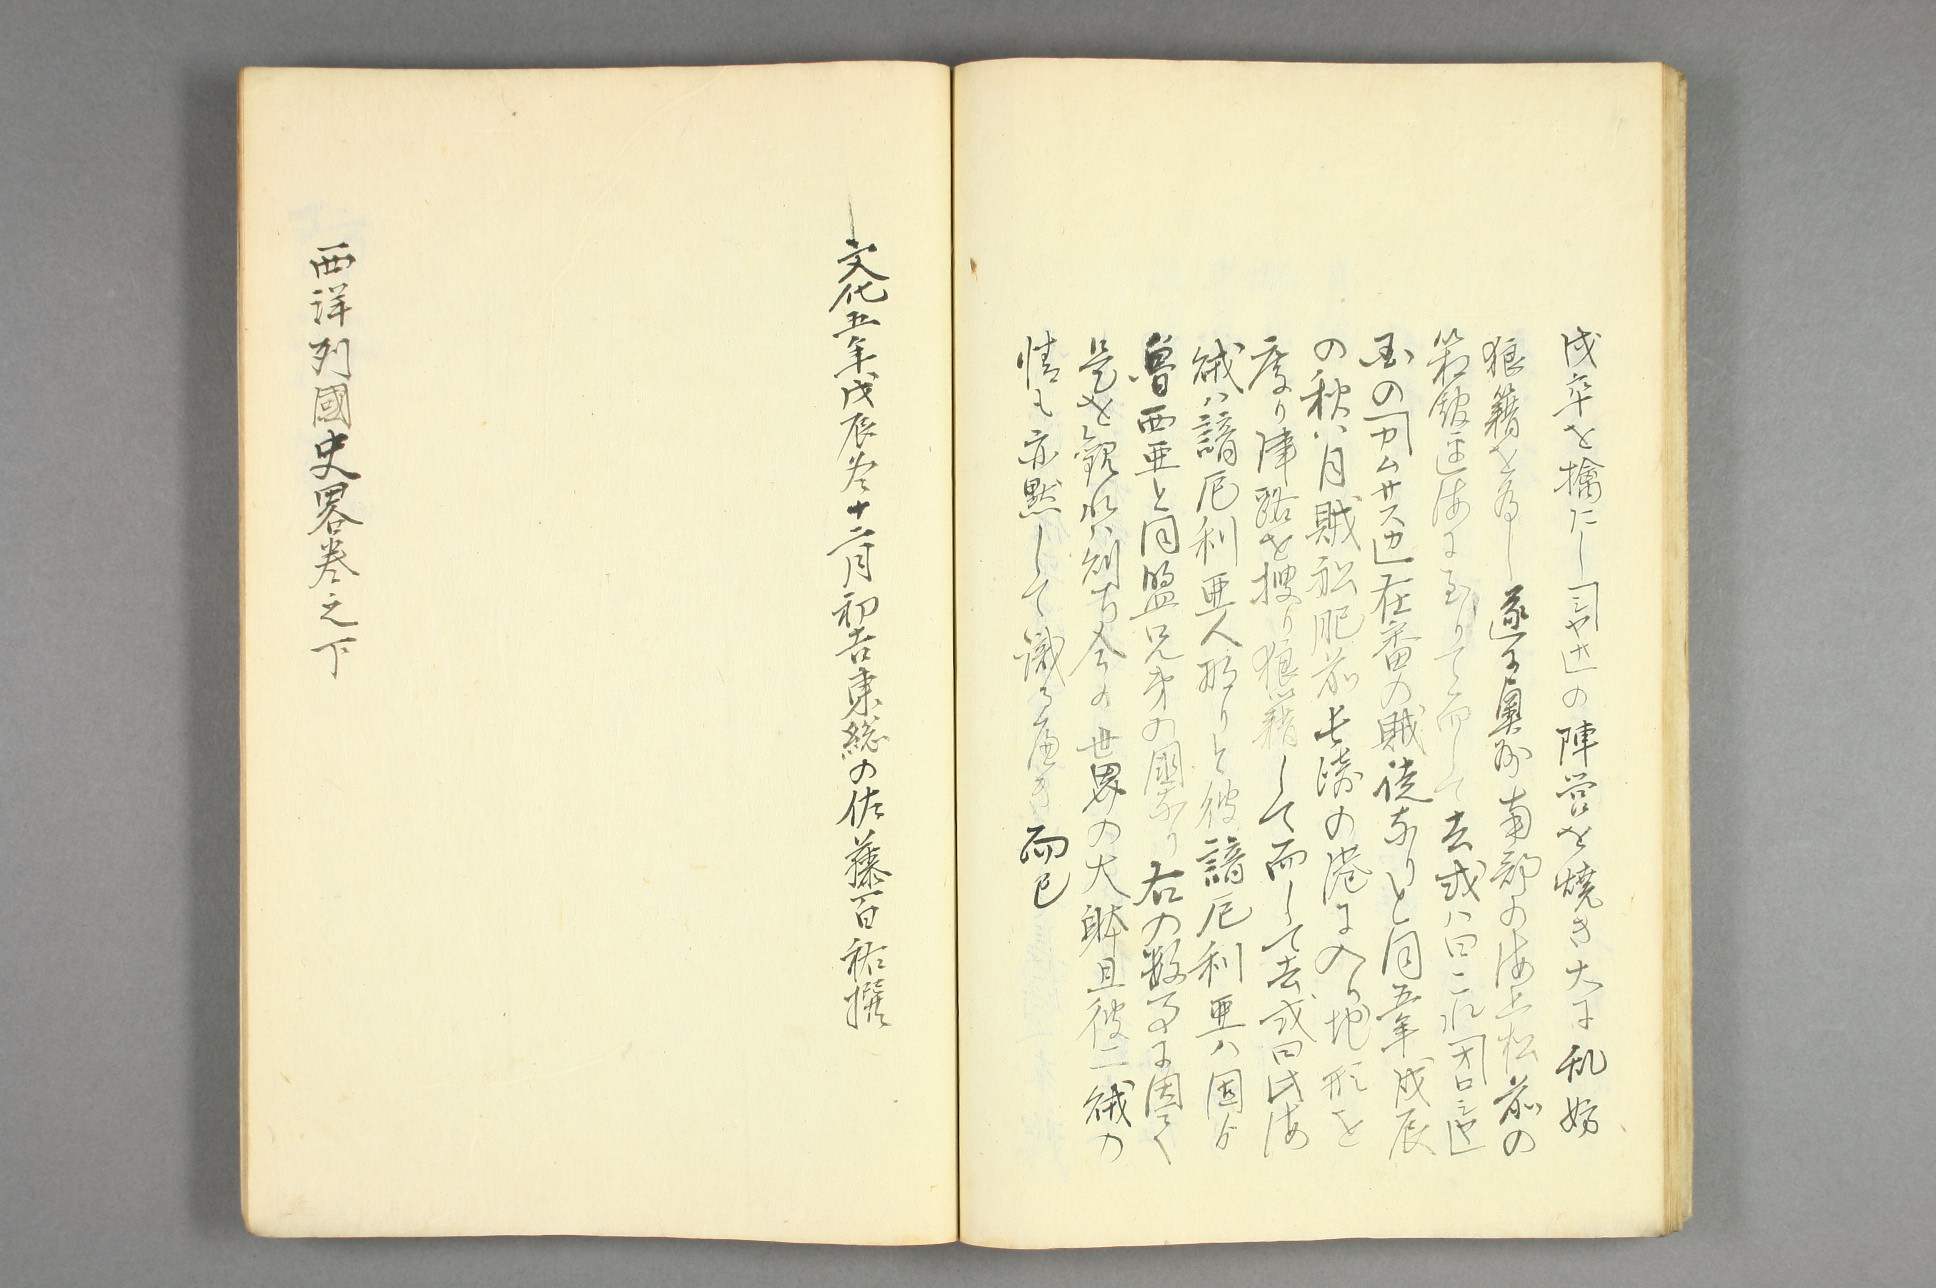 戍卒を擒にし
の陣営を焼き大に乱妨
狼籍を為し遂に奥州南部の海上松前の
箱館近海に至りて而して去或ハ曰これ
国のカムサスカ在番の賊徒なりと同五年戊辰
の秋八月賊船肥前長崎の港に入り地形を
度り津路を捜り狼籍して而して去或曰此海
賊ハ諳厄利亜人なりと彼諳厄利亜ハ固より
魯西亜と同盟兄弟の國なり右の数事に因て
是を観れハ則古今の世界の大躰且彼二賊の
情も亦黙して識る應き而已
文化五年戊辰冬十二月初吉東総の佐藤百祐撰
西洋列國史畧巻之下